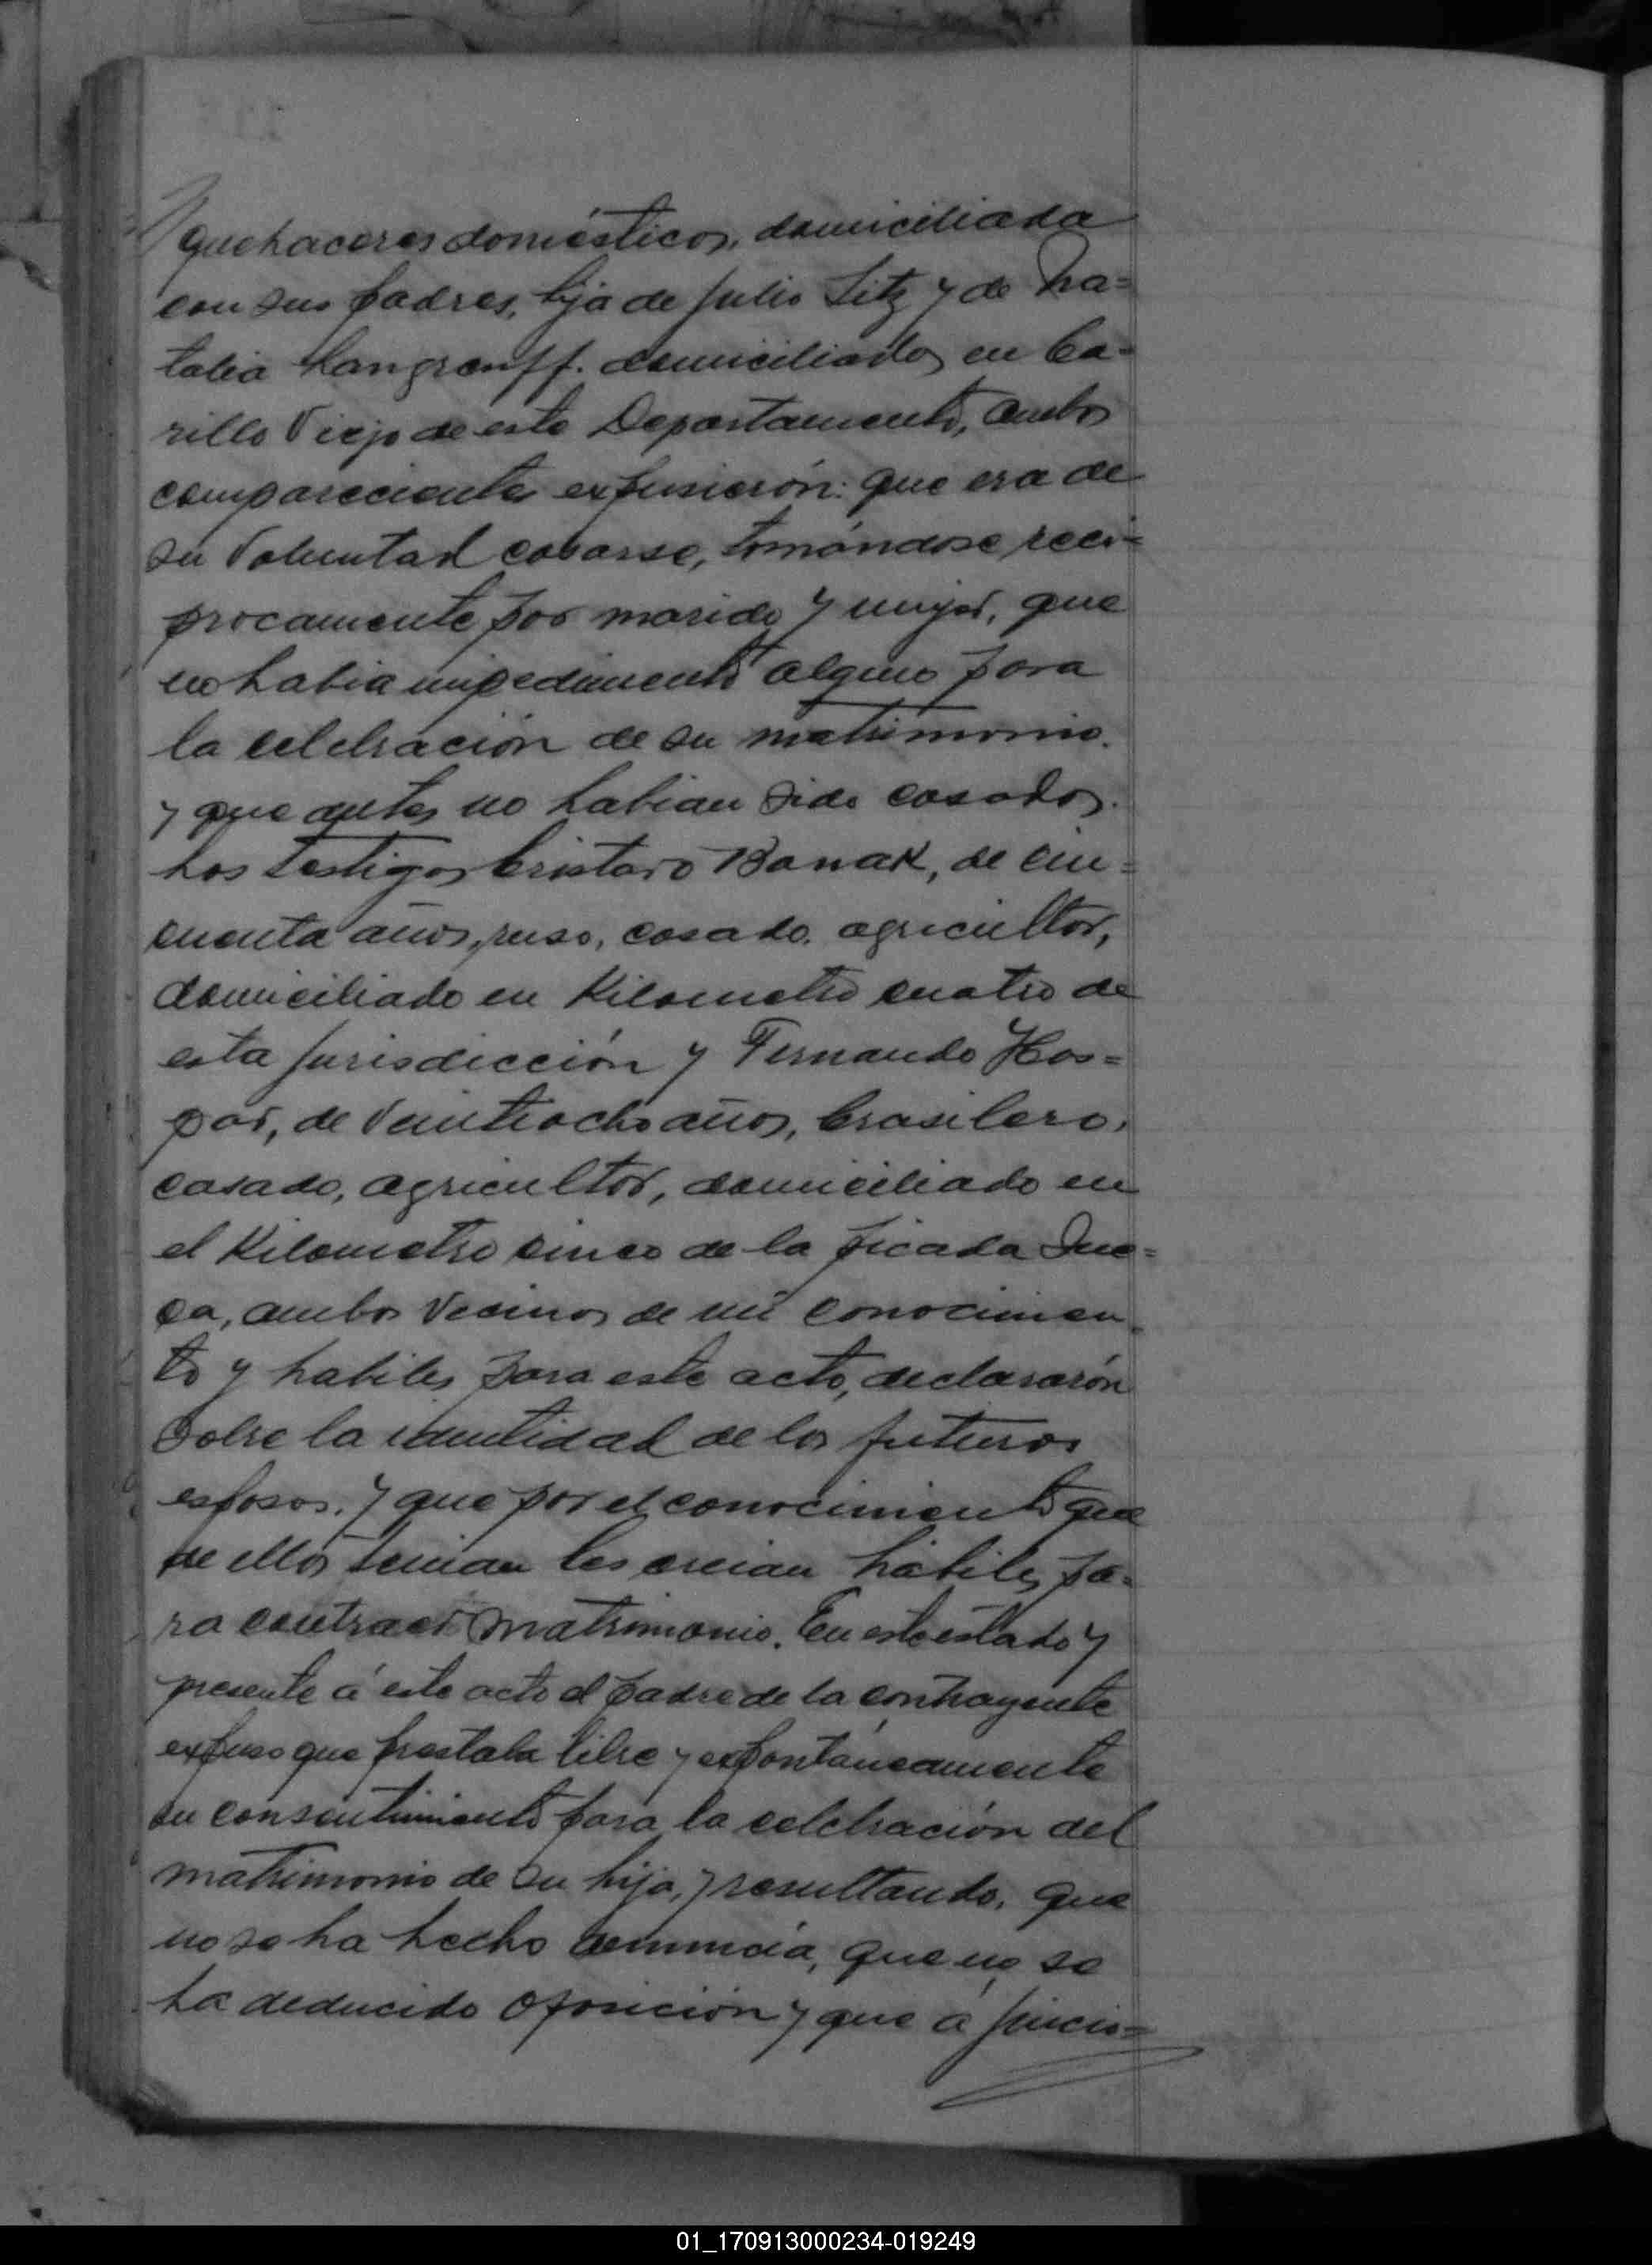 quehaceres domésticos, domiciliada
con sus padres, hija de Julio Litz y de Na=
talia Langranff. domiciliados en Ca=
rillo Viejo de este Departamento, ambos
comparecientes expusierón: que era de
su Voluntad casarse, tomándose reci=
procamente por marido y mujer, que
no habia impedimento alguno para
la celebración de su matrimonio.
y que antes no habian sido casados.
Los testigos Cristavo Banak, de cin=
cuenta años, ruso, casado, agricultor,
domiciliado en Kilometro cuatro de
esta jurisdicción y Fernando Kas=
par, de Veintiocho años, brasilero,
casado, agricultor, domiciliado en
el Kilometro cinco de la picada Sue=
ca, ambos Vecinos de mi conocimien
to y habiles para este acto, declararón
Sobre la identidad de los futuros
esposos, y que por el conocimiento que
de ellos tenian les creian hábiles pa=
ra contraer Matrimonio. En este estado y
presente á este acto el padre de la contrayente
expuso que prestaba libre y espontáneamente
su consentimiento para la celebración del
matrimonio de su hija, y resultando, que
no se ha hecho denuncia, que no se
ha deducido oposición y que á juicio=
01_170913000234-019249